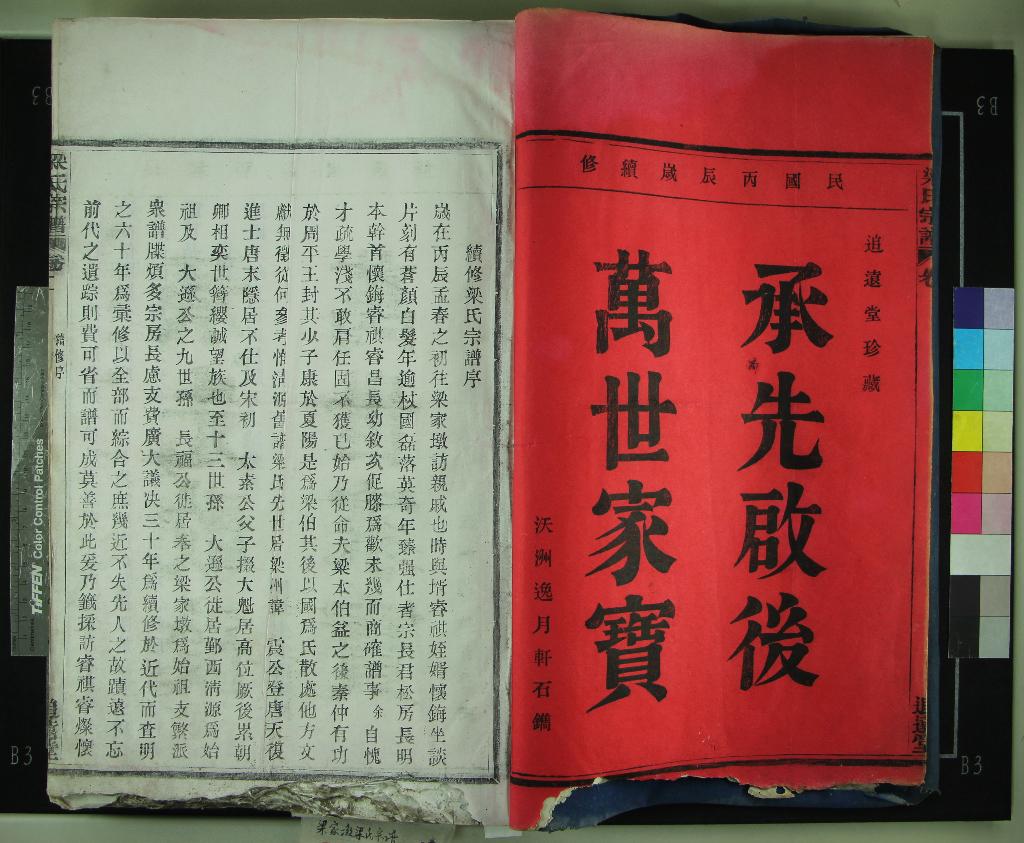 民國丙辰歲續修
追遠堂珍藏
承先啟後
萬世家寶
沃洲逸月軒石鐫
梁氏宗譜
卷
追遠堂
續修梁氏宗譜序
歲在丙辰孟春之初往梁家墩訪親戚也時與壻睿祺姪婿懷鋂坐談
片刻有蒼顏白髮年逾杖國磊落英奇年臻强仕者宗長君松房長明
本幹首懷鋂睿祺睿昌長幼敘亥促膝爲歡未幾而商確譜事余自愧
才疏學淺不敢肩任固不獲已始乃從命夫梁本伯益之後秦仲有功
於周平王封其少子康於夏陽是爲梁伯其後以國爲氏散處他方文
獻無徵從何參考惟清源舊譜梁氏先世居梁州 震公登唐天復
進士唐末隱居不仕及宋初 太素公父子掇大魁居高位厥後累朝
卿相奕世簪纓誠望族也至十三世孫 大遜公徙居鄞西清源爲始
祖及 大遜公之九世孫 長福公徙居奉之梁家墩爲始祖支繁派
衆譜牒煩多宗房長慮支費廣大議決三十年爲續修於近代而查明
之六十年爲彙修以全部而綜合之庶幾近不失先人之故蹟遠不忘
前代之遺踪則費可省而譜可成莫善於此爰乃籤採訪睿祺睿燦懷
梁氏宗譜
卷一
續修序
追遠堂
TIFFEN Color Control Patches
B3
B3
B3
B3